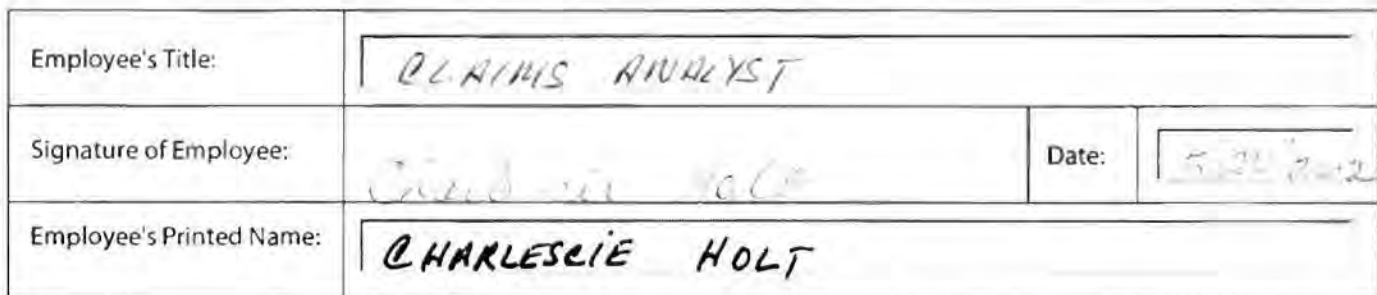 Employee's Title: CLAIMS ANALYST
Signature of Employee: Date:
Employee's Printed Name: CHARLESCIE HOLT